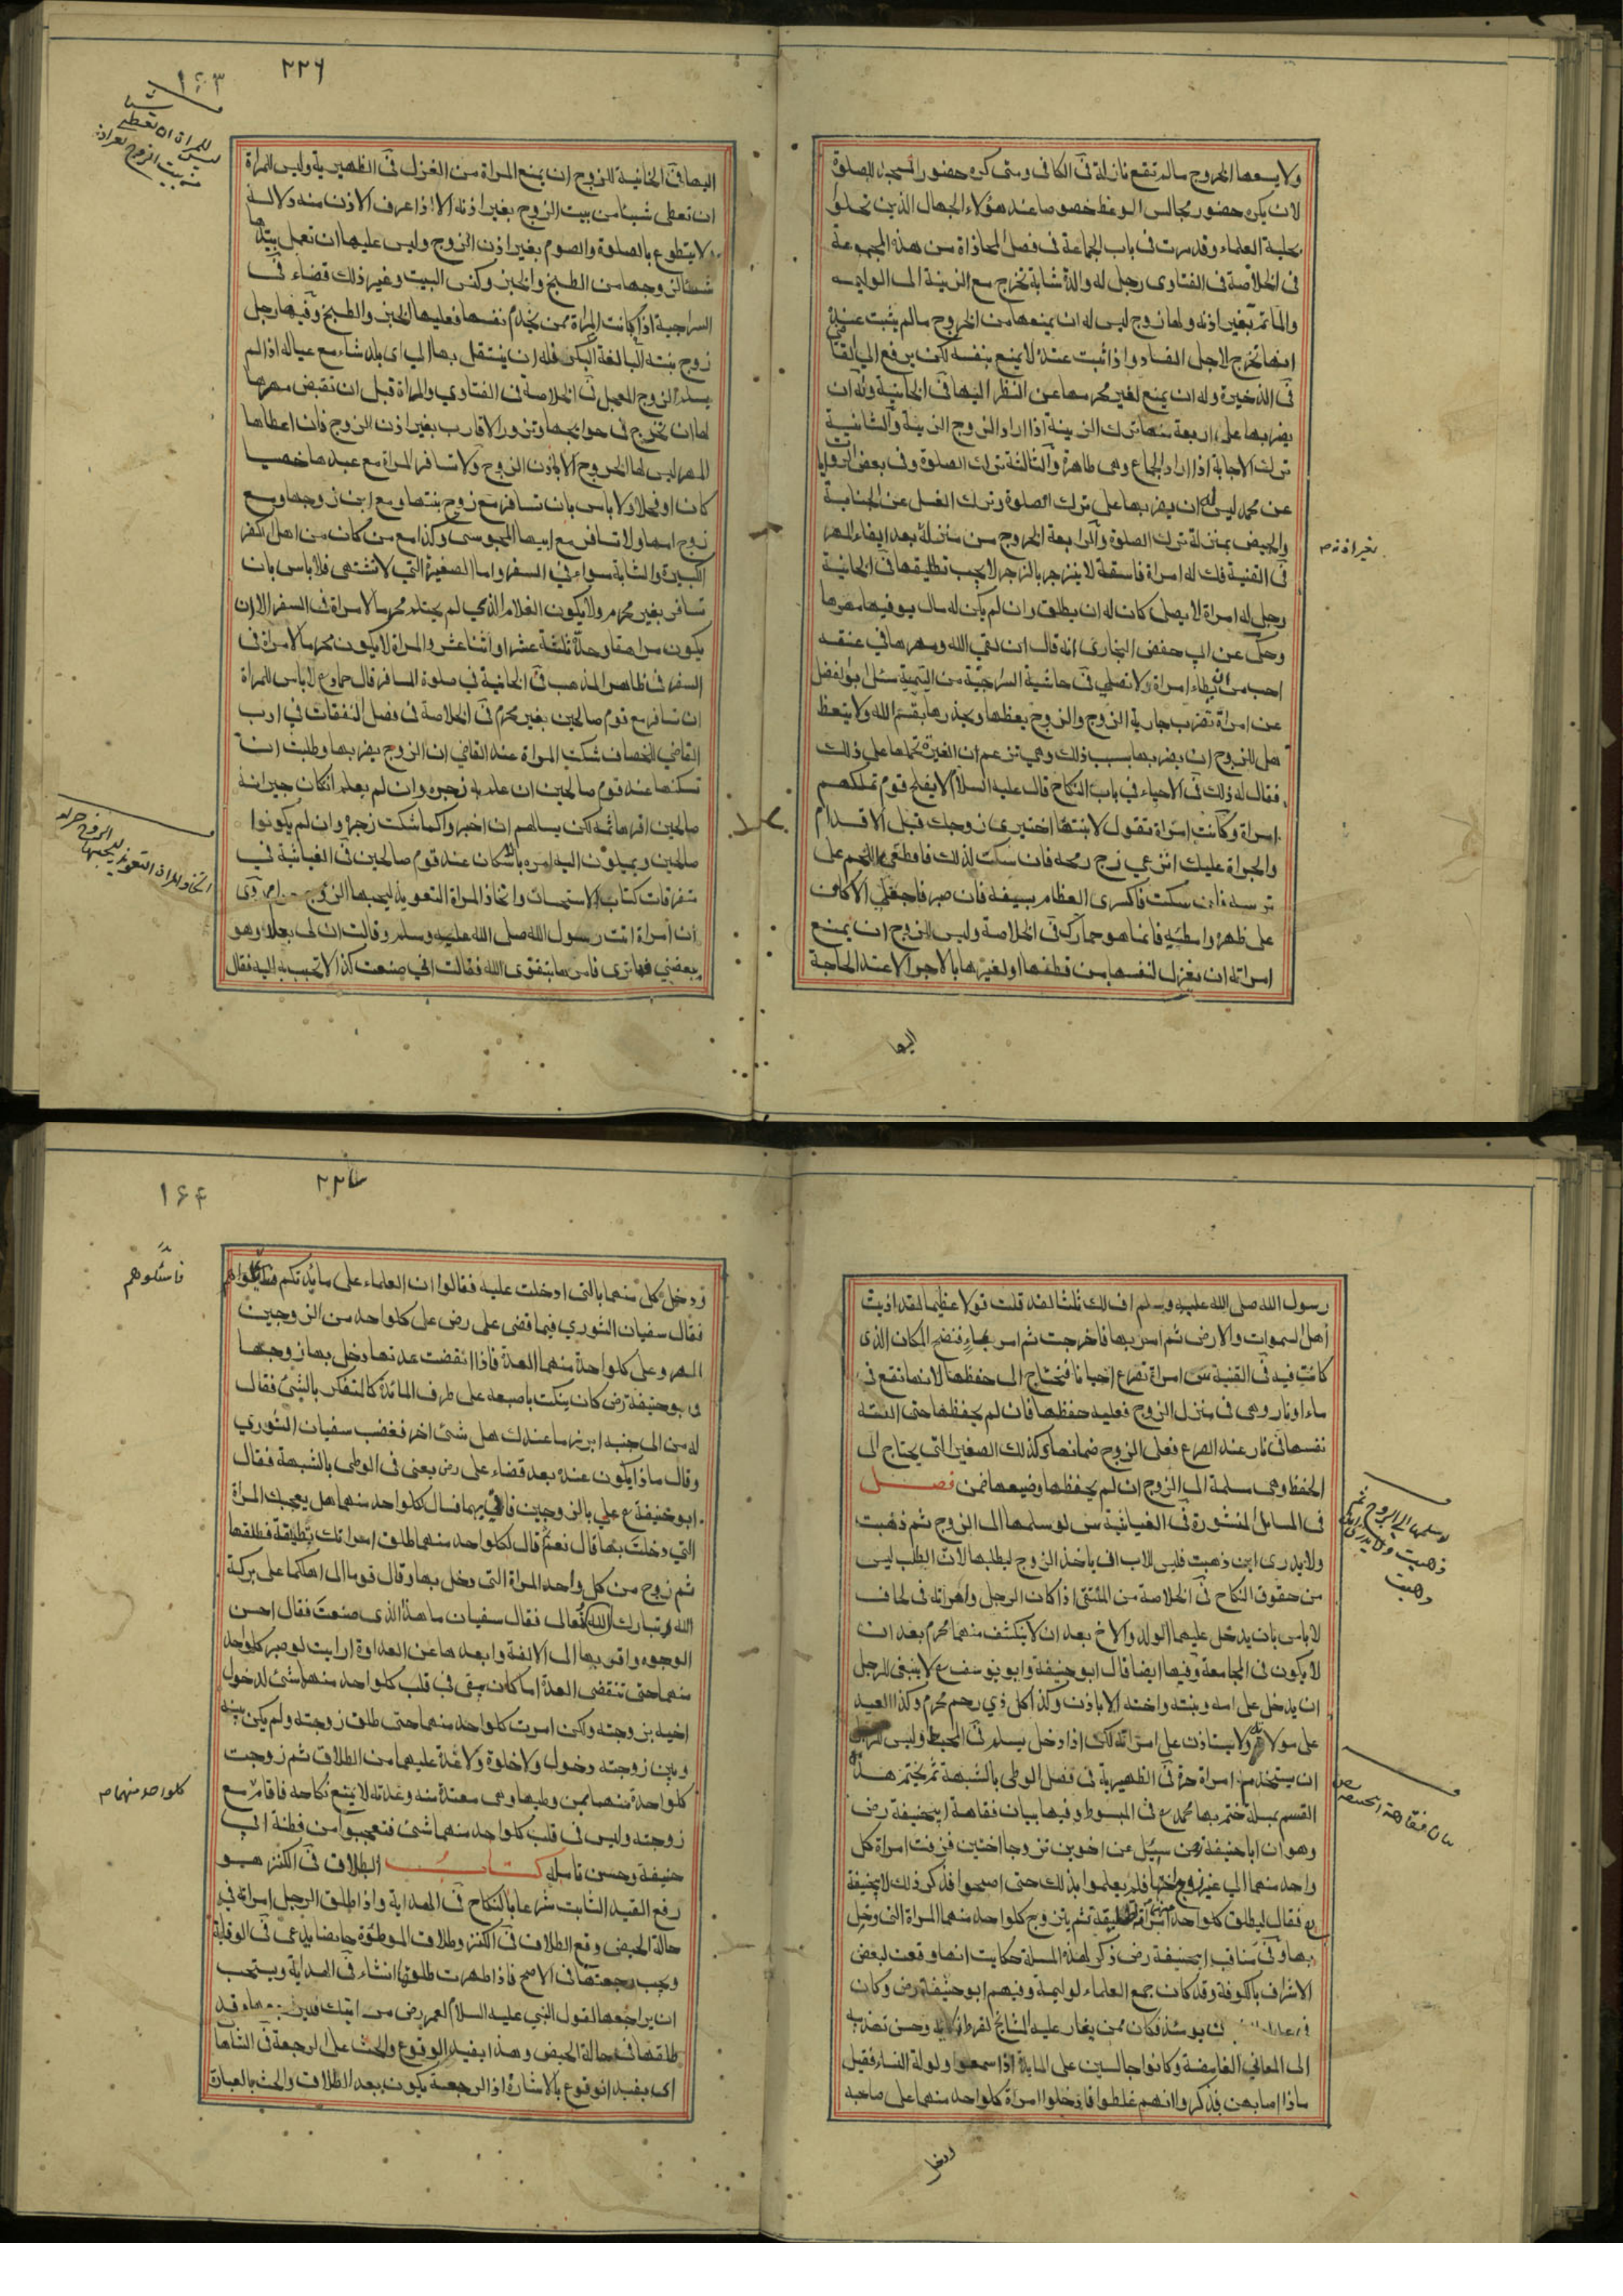 ولا يسعها الخروج مالم تقع نازلة في الكافي ومتى كره حضور المسجد للصلوة
لان يكره حضور مجالس الوعظ خصوصا عند هؤلاء الجهال الذين تحلوا
بحلية العلماء وقد مرت في باب الجماعة في فصل المحاذاة من هذه المجموعة
في الخلاصة في الفتاوى رجل له والدة شابة تخرج مع الزينة الى الوليمه
والماتم بغير اذنه ولها زوج ليس له ان يمنعها من الخروج مالم يثبت عنده
انها تخرج لاجل الفساد واذا ثبت عنده لا يمنع بنفسه لكن يرفع الى القاضي
في الذخيرة وله ان يمنع لغير محرمها عن النظر اليها في الخانية وله ان
يضربها على اربعة منها ترك الزينة اذا اراد الزوج الزينة والثانية
ترك الاجابة اذا اراد الجماع وهى طاهرة والثالثة ترك الصلوة وفى بعض الروايات
عن محمد ليس له ان يضربها على ترك الصلوة وترك الغسل عن الجنابة
والحيض بمنزلة ترك الصلوة والرابعة الخروج من منزله بعد ايفاء المهر
بغير اذنه
في القنية فك له امراة فاسقة لا ينزجر بالزجر لا يجب تطليقها في الخانية
رجل له امراة لا يصلى كان له ان يطلق وان لم يكن له مال يوفيها مهرها
وحكى عن ابي حفص البخارى انه قال ان لقي الله ومهرها في عنقه
احب من ان يطاء امراة لا تصلي في حاشية السراجية من اليتيمة سئل ابو الفضل
عن امراة تضرب جارية الزوج والزوج يعظها ويحذرها بقسم الله ولا يتعظ
هل للزوج ان يضربها بسبب ذلك وهي تزعم ان الغيرة تحملها على ذلك
فقال له ذلك في الاحياء في باب النكاح قال عليه السلام لا يفلح قوم تملكهم
امراة وكانت امراة تقول لابنتها اختبرى زوجك قبل الاقدام
والجراة عليك انزعي زج رمحه فان سكت لذلك فاقطعي اللحم على
ترسه فان سكت فاكسرى العظام بسيفه فان صبر فاجعلي الاكاف
على ظهره وامطيه فانما هو حمارك في الخلاصة وليس للزوج ان يمنع
امراته ان تغزل لنفسها من قطنها او لغيرها بالاجر الا عند الحاجة
اليها
٢٢٦
١٦٣
ليس للمراة ان تعطى
من بيت الزوج بغير اذنه
اليها في الخانية للزوج ان يمنع المراة من الغزل في الظهيرية وليس للمراة
ان تعطى شيئا من بيت الزوج بغير اذنه الا اذا عرف الاذن منه دلالة
ولا يتطوع بالصلوة والصوم بغير اذن الزوج وليس عليها ان تعمل بيدها
شيئا لزوجها من الطبخ والخبز وكنس البيت وغير ذلك قضاء في
السراجية اذا كانت المراة ممن يخدم نفسها فعليها الخبز والطبخ وفيها رجل
زوج بنته البالغة البكر فله ان ينتقل بها الى اى بلد شاء مع عياله اذا لم
يسلم الزوج المعجل في الخلاصة في الفتاوي والمراة قبل ان تقبض مهرها
لها ان تخرج في حوايجها وتزور الاقارب بغير اذن الزوج فان اعطاها
المهر ليس لها الخروج الا باذن الزوج ولا تسافر المراة مع عبدها خصيا
كان او فحلا ولا باس بان تسافر مع زوج بنتها ومع ابن زوجها ومع
زوج امها ولا تسافر مع ابيها المجوسى وكذا مع من كان من اهل الكفر
الكبيرة والشابة سواء في السفر واما الصغيرة التي لا تشتهى فلا باس بان
تسافر بغير محرم ولا يكون الغلام الذي لم يحتلم محرما لامراة في السفر الا ان
يكون مراهقا وحده ثلثة عشر او اثنا عشر والمراة لا يكون محرما لامراة في
السفر في ظاهر المذهب في الخانية في صلوة المسافر قال حماد ع لا باس للمراة
ان تسافر مع قوم صالحين بغير محرم في الخلاصة في فصل النفقات في ادب
القاضي للخصاف شكت المراة عند القاضي ان الزوج يضربها وطلبت ان
تسكنها عند قوم صالحين ان علم به زجره وان لم يعلم انكان جيرانه
صالحين اقرها ثمه لكن يسالهم ان اخبروا كما شكت زجره وان لم يكونوا
صالحين ويميلون اليه امره باسكان عند قوم صالحين في الغياثية في
متفرقات كتاب الاستحسان واتخاذ المراة التعويذ ليحبها الزوج حرام روى
ان امراة اتت رسول الله صلى الله عليه وسلم وقالت ان لى بعلا وهو
يبغضني فما ترى فامرها بتقوى الله فقالت اني صنعت كذا لا تحبب به اليه فقال
اتخاذ المراة التعويذ ليحبها الزوج حرام
رسول الله صلى الله عليه وسلم اف لك ثلثا لقد قلت قولا عظيما لقد اذيت
اهل السموات والارض ثم امر بها فاخرجت ثم امر بماء فنضح المكان الذى
كانت فيه في القنية امراة تصرع احيانا فتحتاج الى حفظها لانها تقع في
ماء او نار وهى في منزل الزوج فعليه حفظها فان لم يحفظها حتى القته
نفسها في نار عند الصرع فعلى الزوج ضمانها وكذلك الصغيرة التي يحتاج الى
الحفظ وهى مسلمة الى الزوج ان لم يحفظها وضيعها ضمن فصل
في المسايل المنثورة في الغياثية س لو سلمها الى الزوج ثم ذهبت
ولا يدرى اين ذهبت فليس للاب ان ياخذ الزوج ليطلبها لان الطلب ليس
من حقوق النكاح في الخلاصة من المنتقى اذا كان الرجل وامراته في لحاف
لا باس بان يدخل عليهما الولد والاخ بعد ان لا ينكشف منهما محرم بعد ان
لا يكون في المجامعة وفيها ايضا قال ابو حنيفة وابو يوسف ع لا ينبغى للرجل
ان يدخل على امه وبنته واخته الا باذن وكذا كل ذي رحم محرم وكذا العبد
على مولاته ولا يستاذن على امراته لكن اذا دخل يسلم في المحيط وليس للرجل
ان يستخدم امراة حرة في الظهيرية في فصل الوطى بالشبهة ثم يختم هذا
القسم بمسئلة ختم بها محمد ع في المبسوط وفيها بيان فقاهة ابيحنيفة رض
وهو ان ابا حنيفة رض سئل عن اخوين تزوجا اختين فزفت امراة كل
واحد منهما الى غير زوجها فلم يعلموا بذلك حتى اصبحوا فذكر ذلك لابيحنيفة
رح فقال ليطلق كلواحد منهما امراته تطليقة ثم يتزوج كلواحد منهما المراة التى دخل
بها وفي مناقب ابيحنيفة رض ذكر لهذه المسئلة حكايت انها وقعت لبعض
الاشراف بالكوفة وقد كان جمع العلماء لوليمة وفيهم ابو حنيفة رض وكان
في عداد يومئذ فكان ممن يغار عليه المشايخ لفرط وحسن تهديه
الى المعانى الغامضة وكانوا جالسين على المايدة اذا سمعوا ولولة النساء فقيل
ماذا اصابهن فذكروا انهم غلطوا فادخلوا امراة كلواحد منهما على صاحبه
ودخل
لو سلمها الى الزوج ثم
ذهبت ولا يدرى اين
ذهبت
بيان فقاهة ابيحنيفة رض
٢٢٧
١٦٤
ودخل كل منهما بالتى ادخلت عليه فقالوا ان العلماء على مائدتكم
فاسئلوهم
فقال سفيان الثوري فيها قضى على رض على كلواحد من الزوجين
المهر وعلى كلواحدة منهما العدة فاذا انقضت عدتها دخل بها زوجها
وابو حنيفة رض كان ينكت باصبعه على طرف المائدة كالمتفكر بالشئ فقال
له من الى جنبه ابرز ما عندك هل شئ اخر فغضب سفيان الثوري
وقال ماذا يكون عنده بعد قضاء على رض يعنى في الوطى بالشبهة فقال
ابو حنيفة ع علي بالزوجين فاتي بهما فسال كلواحد منهما هل يعجبك المراة
التي دخلت بها قال نعم ثم قال لكلواحد منهما طلق امراتك تطليقة فطلقها
ثم زوج من كل واحد المراة التى دخل بها وقال قوما الى اهلكما على بركة
الله تبارك وتعالى فقال سفيان ما هذا الذى صنعت فقال احسن
الوجوه واقربها الى الالفة وابعدها عن العداوة ارايت لو صبر كلواحد
منهما حتى تنقضى العدة اما كان يبقى في قلب كلواحد منهما شئ لدخول
اخيه بزوجته ولكن امرت كلواحد منهما حتى طلق زوجته ولم يكن بينه
وبين زوجته دخول ولا خلوة ولا عدة عليهما من الطلاق ثم زوجت
كلواحدة منهما ممن وطيها وهى معتدة منه وعدته لا يمنع نكاحه فاقام مع
كلواحد منهما
زوجته وليس في قلب كلواحد منهما شئ فتعجبوا من فطنة ابي
حنيفة وحسن تامله كتاب الطلاق في الكنز هو
رفع القيد الثابت شرعا بالنكاح في الهداية واذا طلق الرجل امراته في
حالة الحيض وقع الطلاق في الكنز وطلاق الموطؤة حايضا بدعى في الوقاية
وتجب رجعتها في الاصح فاذا طهرت طلقها ان شاء في الهداية ويستحب
ان يراجعها لقول النبي عليه السلام لعمر رض مر ابنك فليراجعها وقد
طلقها في حالة الحيض وهذا يفيد الوقوع والحث على الرجعة في
اى يفيد الوقوع بالاشارة اذ الرجعة يكون بعد الطلاق والحث بالعبارة